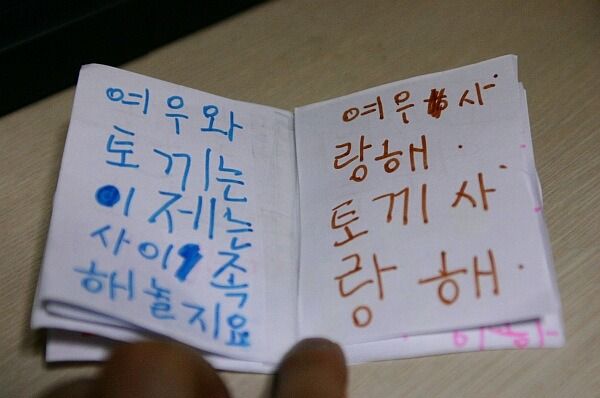 여우와
토끼는
이제는
사이족
해놀지요
여우 사.
랑해.
토끼 사.
랑해.